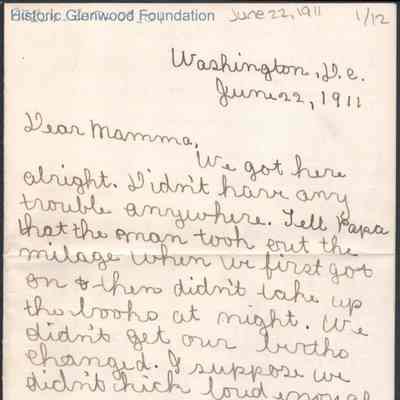 Historic Glenwood Foundation
June 22, 1911
1/12
Washington, D.C.
June 22, 1911
Dear Mamma,
We got here
alright. Didn't have any
trouble anywhere. Tell Papa
that the man took out the
milage when we first got
on & then didn't take up
the books at night. We
didn't get our births
changed. I suppose we
didn't kick loud enough